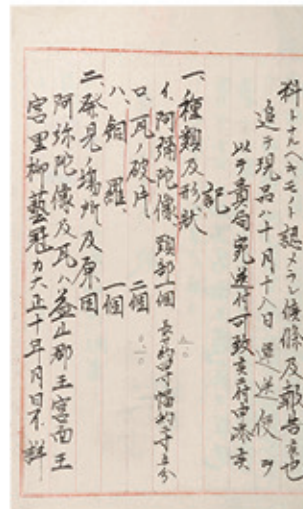 料トナルヘキモノト認メラレ候條及報告候也
追テ現品ハ十月十八日運送便ヲ
以テ貴局宛送付可致候府申添候
記
一、種類及形狀
イ、阿彌陀像頭部一個 長サ約四寸幅約二寸五分
ロ、瓦ノ破片 二個
ハ、銅羅、 一個
二、發見ノ場所及原因
阿弥陀像及瓦ハ益山郡王宮面王
宮里柳藝冠カ大正十年月日不詳